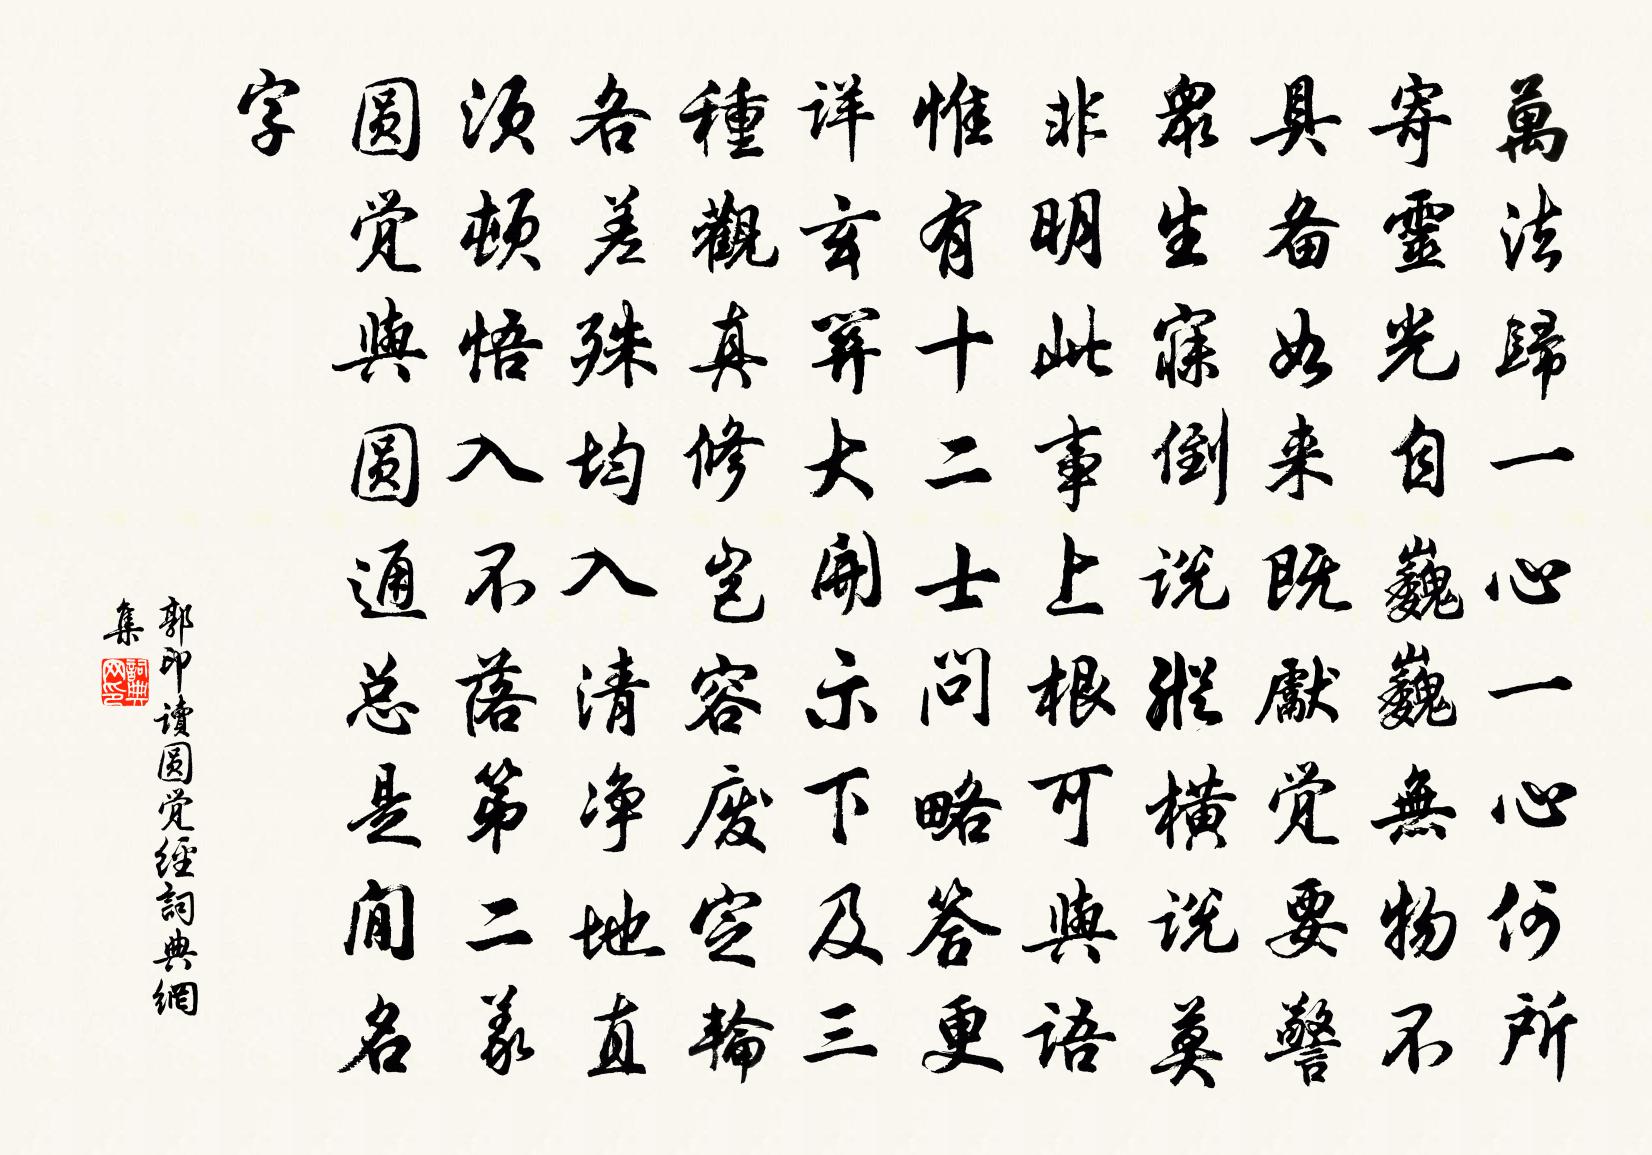 萬法歸一心一心何所
寄靈光自巍巍無物不
具备如来既獻觉要警
衆生寐倒说縱橫说莫
非明此事上根可與语
惟有十二士问略答更
详玄关大開示下及三
種觀真修岂容废定輪
各差殊均入清净地直
须顿悟入不落第二義
圆觉與圆通总是閒名
字
郭印讀圆觉經詞典網
集
詞典网印